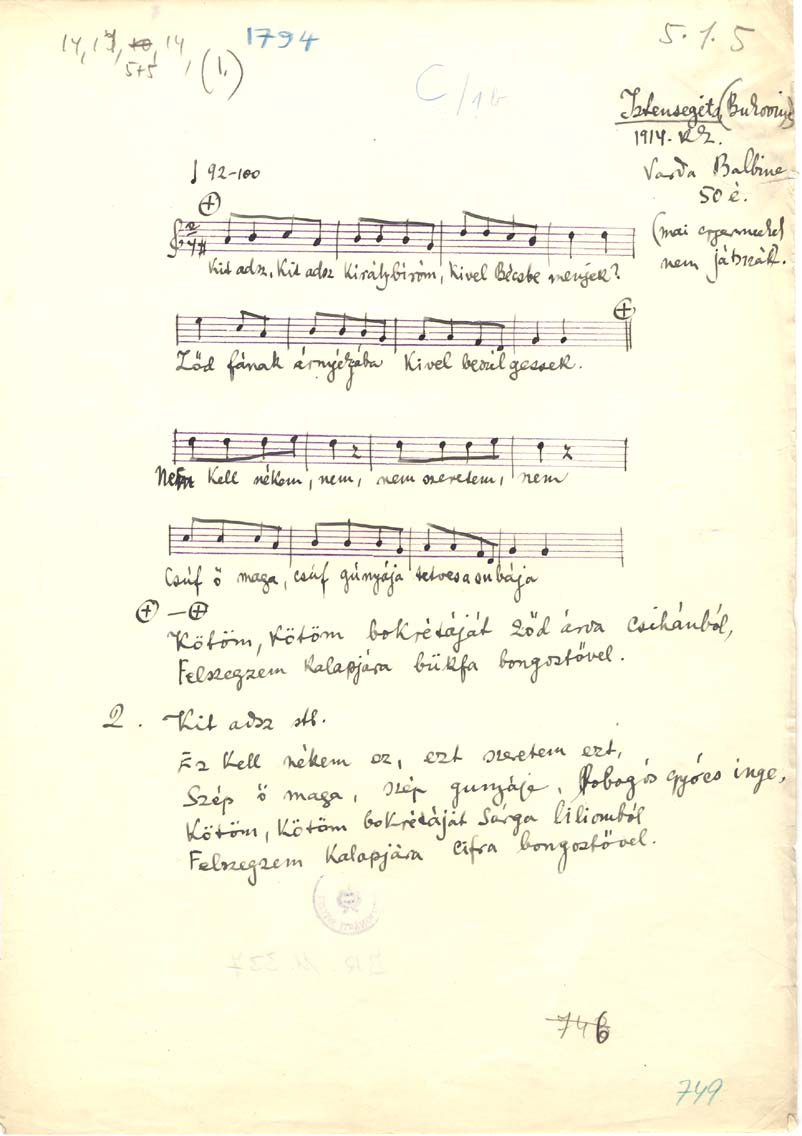 14, 17, 10, 14,
5+5
(1.)
1794
5.1.5
C/1b
Istensegíts (Bukovina)
1914. KZ.
Varda Balbine
50 é.
(mai gyermekek
nem játszák.
♩ 92-100
2/4
Kit adsz, Kit adsz Királybiróm, kivel Bécsbe menjek?
Ződ fának árnyézába Kivel beszélgessek.
Nem Kell nékem, nem, nem szeretem, nem
Csúf ő maga, csúf gúnyája tetves a subája
⊕ — ⊕
Kötöm, Kötöm bokrétáját Ződ árva csihánból,
Felszegzem kalapjára bükfa bongostővel.
2. Kit adsz stb.
Ez Kell nékem ez, ezt szeretem ezt,
Szép ő maga, szép gunyája, lobogós gyócs inge,
Kötöm, Kötöm bokrétáját Sárga liliomból
Felszegzem Kalapjára Cifra bongostővel.
746
749